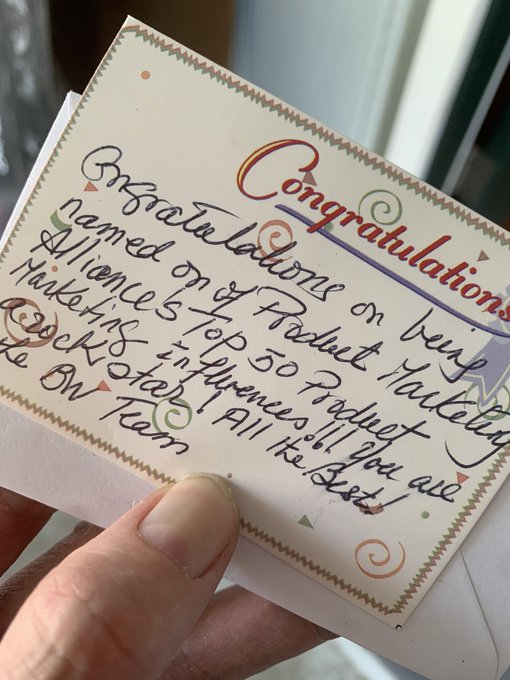 Congratulations
Congratulations on being
named on of Product Marketing
Alliance's Top 50 Product
Marketing influences!!! You are
a rock star! All the Best!
the BW Team